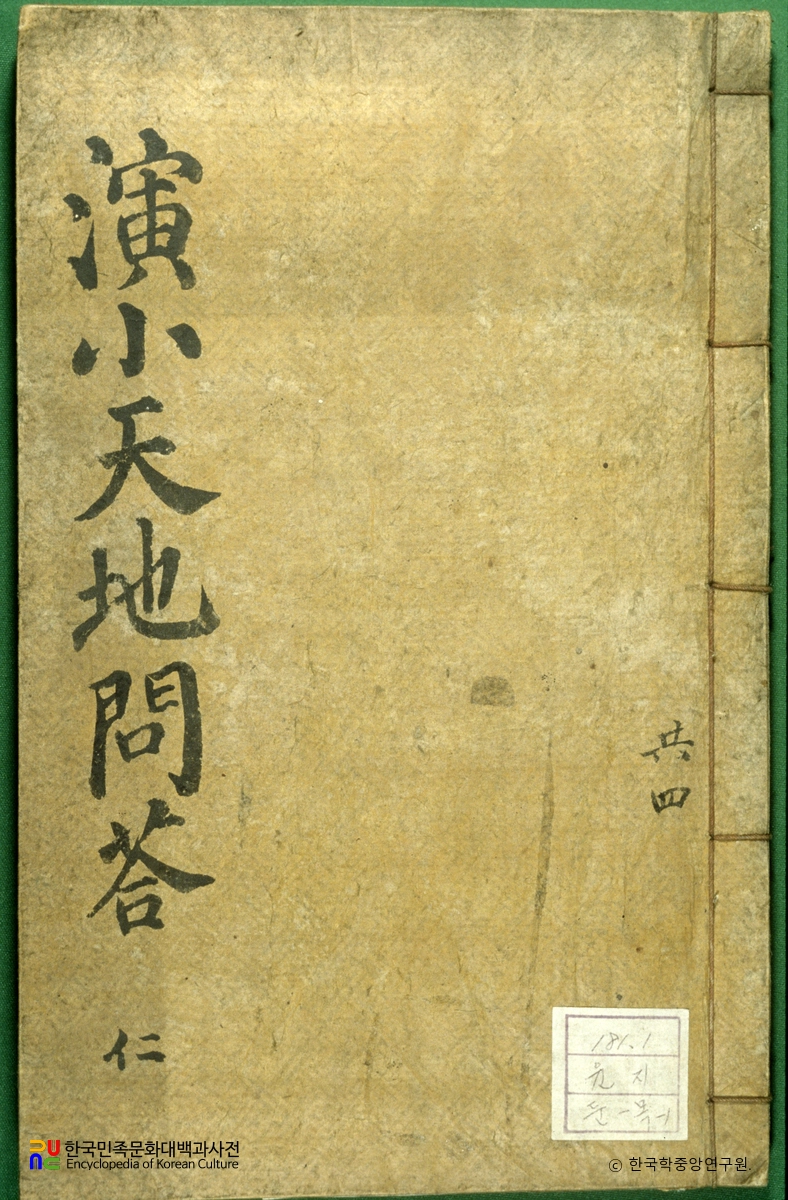 演小天地問荅
仁
共四
181.1
윤 지
한국민족문화대백과사전
Encyclopedia of Korean Culture
© 한국학중앙연구원.